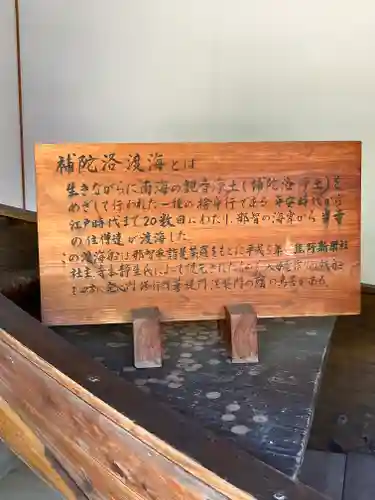 補陀洛渡海とは
生きながらに南海の観音浄土(補陀洛浄土)を
めざして行われた一種の捨身行である 平安時代から
江戸時代まで20数回にわたり、那智の海岸から 当寺
の住僧達が渡海した
この渡海船は那智参詣曼荼羅をもとに平成5年 熊野新
社主 によって復元された
に 発心門 修行門 菩提門 涅槃門の の鳥居がある